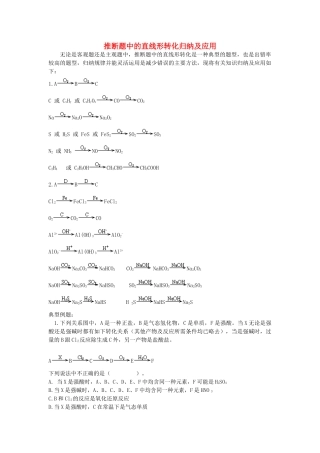 推断题中的直线形转化归纳及应用
无论是客观题还是主观题中，推断题中的直线形转化是一种典型的题型，也是出错率
较高的题型，归纳规律并能灵活运用是减少错误的主要方法，现将有关知识归纳及应用如
下：
1.A →O₂ B →O₂ C
C 或 CₓHᵧ 或 CₓHᵧO₂ →O₂ CO →O₂ CO₂
Na →O₂ Na₂O →O₂ Na₂O₂
S 或 H₂S 或 FeS 或 FeS₂ →O₂ SO₂ →O₂ SO₃
N₂ 或 NH₃ →O₂ NO →O₂ NO₂
C₂H₅OH →O₂ CH₃CHO →O₂ CH₃COOH
2.A →D B →D C
Cl₂ →Fe FeCl₃ →Fe FeCl₂
O₂ →C CO₂ →C CO
Al³⁺ →OH⁻ Al(OH)₃ →OH⁻ AlO₂⁻
AlO₂⁻ →H⁺ Al(OH)₃ →H⁺ Al³⁺
NaOH →CO₂ Na₂CO₃ →CO₂ NaHCO₃ CO₂ →NaOH Na₂CO₃ →NaOH NaHCO₃
NaOH →SO₂ Na₂SO₃ →SO₂ NaHSO₃ SO₂ →NaOH Na₂SO₃ →NaOH NaHSO₃
NaOH →H₂S Na₂S →H₂S NaHS H₂S →NaOH Na₂S →NaOH NaHS
典型例题：
1.下列关系图中，A 是一种正盐，B 是气态氢化物，C 是单质，F 是强酸。当 X 无论是强
酸还是强碱时都有如下转化关系（其他产物及反应所需条件均已略去），当 X 是强碱时，过
量的 B 跟 Cl₂反应除生成 C 外，另一产物是盐酸盐。
A →X B → C → D → E → F
下列说法中不正确的是（ ）。
A. 当 X 是强酸时，A、B、C、D、E、F 中均含同一种元素，F 可能是 H₂SO₄
B. 当 X 是强碱时，A、B、C、D、E、F 中均含同一种元素，F 是 HNO₃
C.B 和 Cl₂的反应是氧化还原反应
D. 当 X 是强酸时，C 在常温下是气态单质